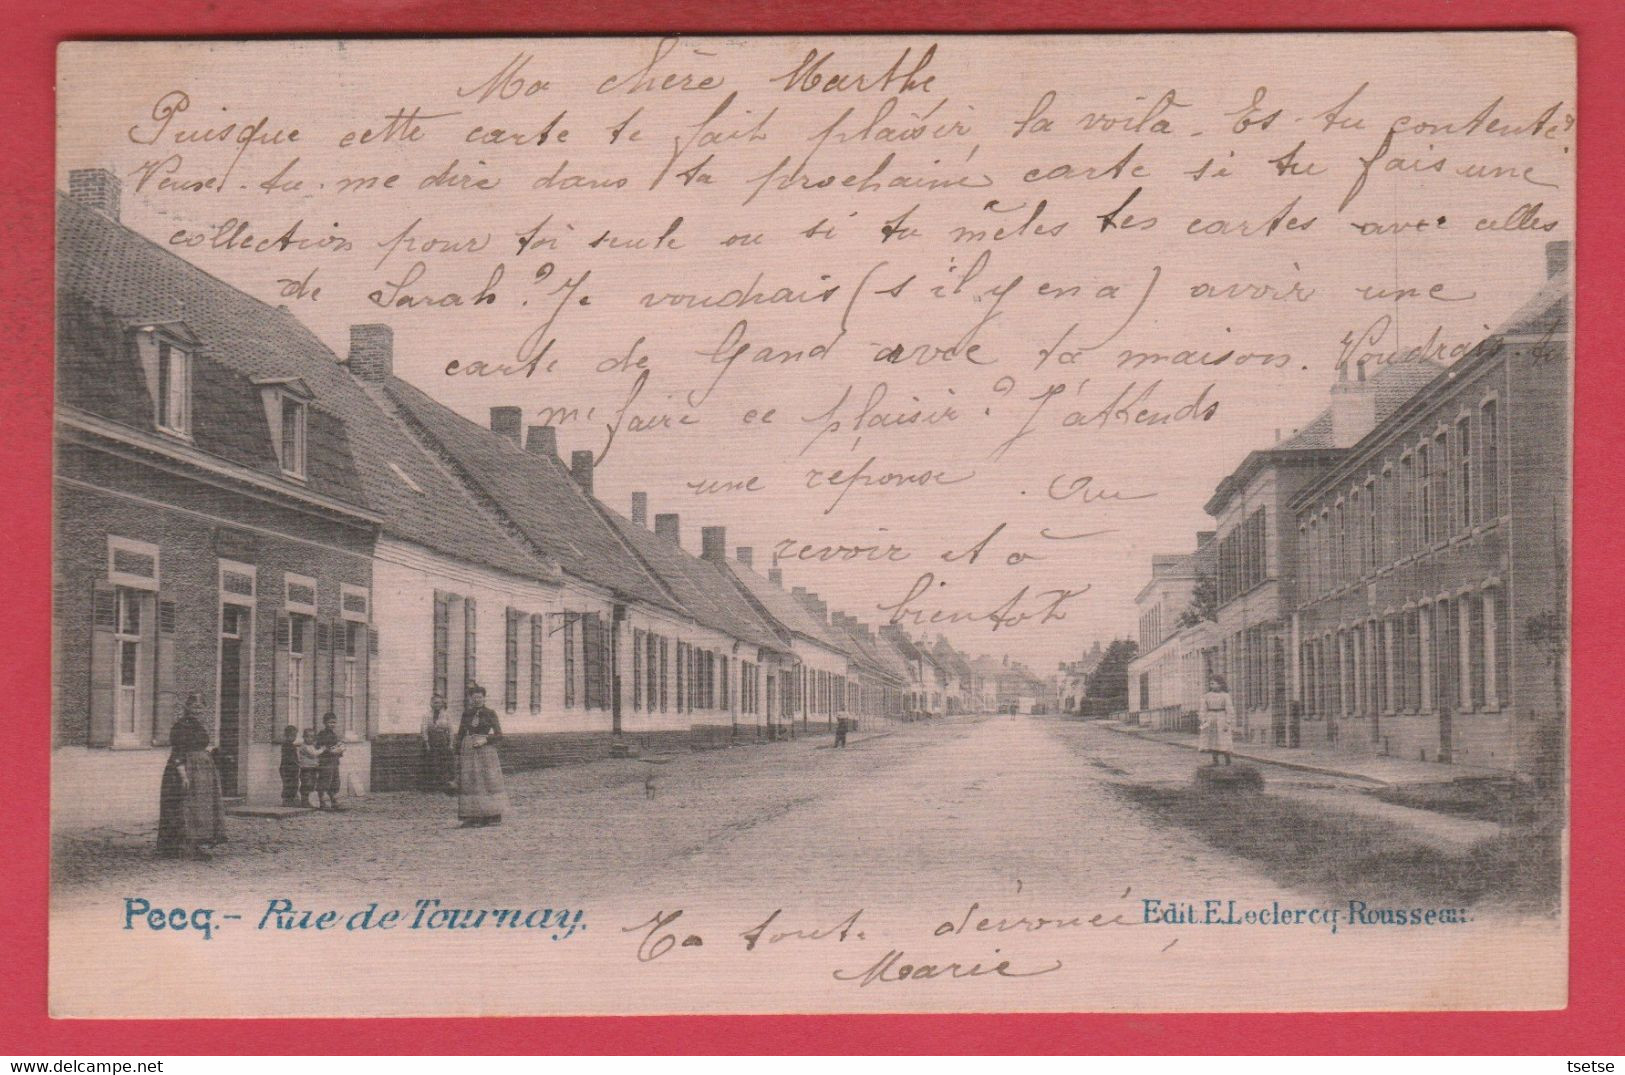 Ma chère Marthe
Puisque cette carte te fait plaisir, la voilà. Es-tu contente?
Veux-tu me dire dans ta prochaine carte si tu fais une
collection pour toi seule ou si tu mêles tes cartes avec celles
de Sarah? Je voudrais (s'il y en a) avoir une
carte de Gand avec ta maison. Voudrais-tu
me faire ce plaisir? J'attends
une réponse. Au
revoir et à
bientôt
Pecq.- Rue de Tournay.
Edit. E. Leclercq-Rousseau.
Ta toute dévouée
Marie
delcampe.net
tsetse